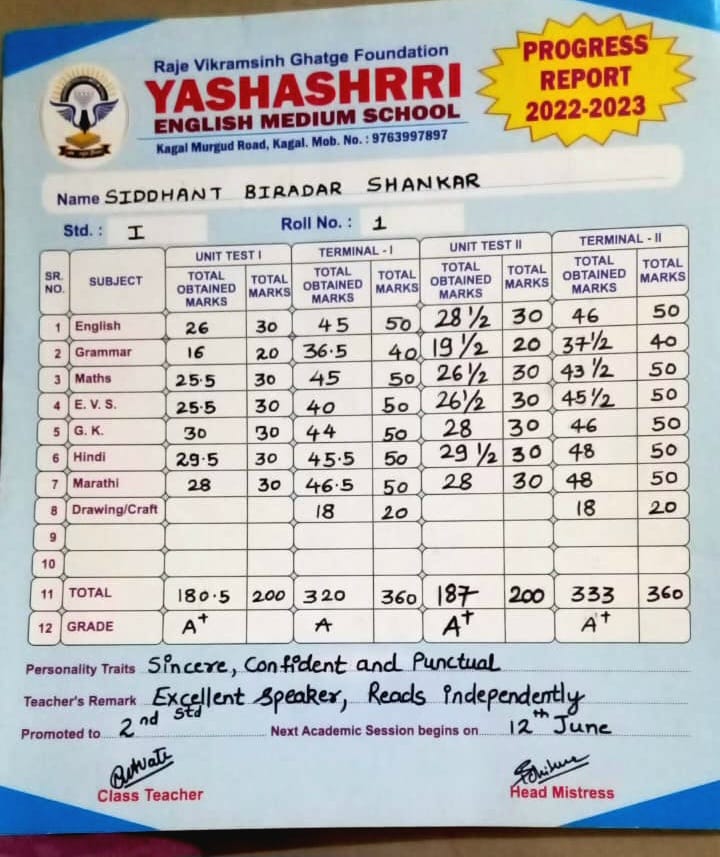 Raje Vikramsinh Ghatge Foundation
YASHASHRRI
ENGLISH MEDIUM SCHOOL
Kagal Murgud Road, Kagal. Mob. No. : 9763997897
PROGRESS
REPORT
2022-2023
Name SIDDHANT BIRADAR SHANKAR
Std. : I Roll No. : 1
SR. NO. SUBJECT UNIT TEST I TERMINAL - I UNIT TEST II TERMINAL - II
TOTAL OBTAINED MARKS TOTAL MARKS TOTAL OBTAINED MARKS TOTAL MARKS TOTAL OBTAINED MARKS TOTAL MARKS TOTAL OBTAINED MARKS TOTAL MARKS
1 English 26 30 45 50 28 1/2 30 46 50
2 Grammar 16 20 36.5 40 19 1/2 20 37 1/2 40
3 Maths 25.5 30 45 50 26 1/2 30 43 1/2 50
4 E. V. S. 25.5 30 40 50 26 1/2 30 45 1/2 50
5 G. K. 30 30 44 50 28 30 46 50
6 Hindi 29.5 30 45.5 50 29 1/2 30 48 50
7 Marathi 28 30 46.5 50 28 30 48 50
8 Drawing/Craft 18 20 18 20
9
10
11 TOTAL 180.5 200 320 360 187 200 333 360
12 GRADE A+ A A+ A+
Personality Traits Sincere, Confident and Punctual
Teacher's Remark Excellent Speaker, Reads independently
Promoted to 2nd Std Next Academic Session begins on 12th June
Class Teacher Head Mistress